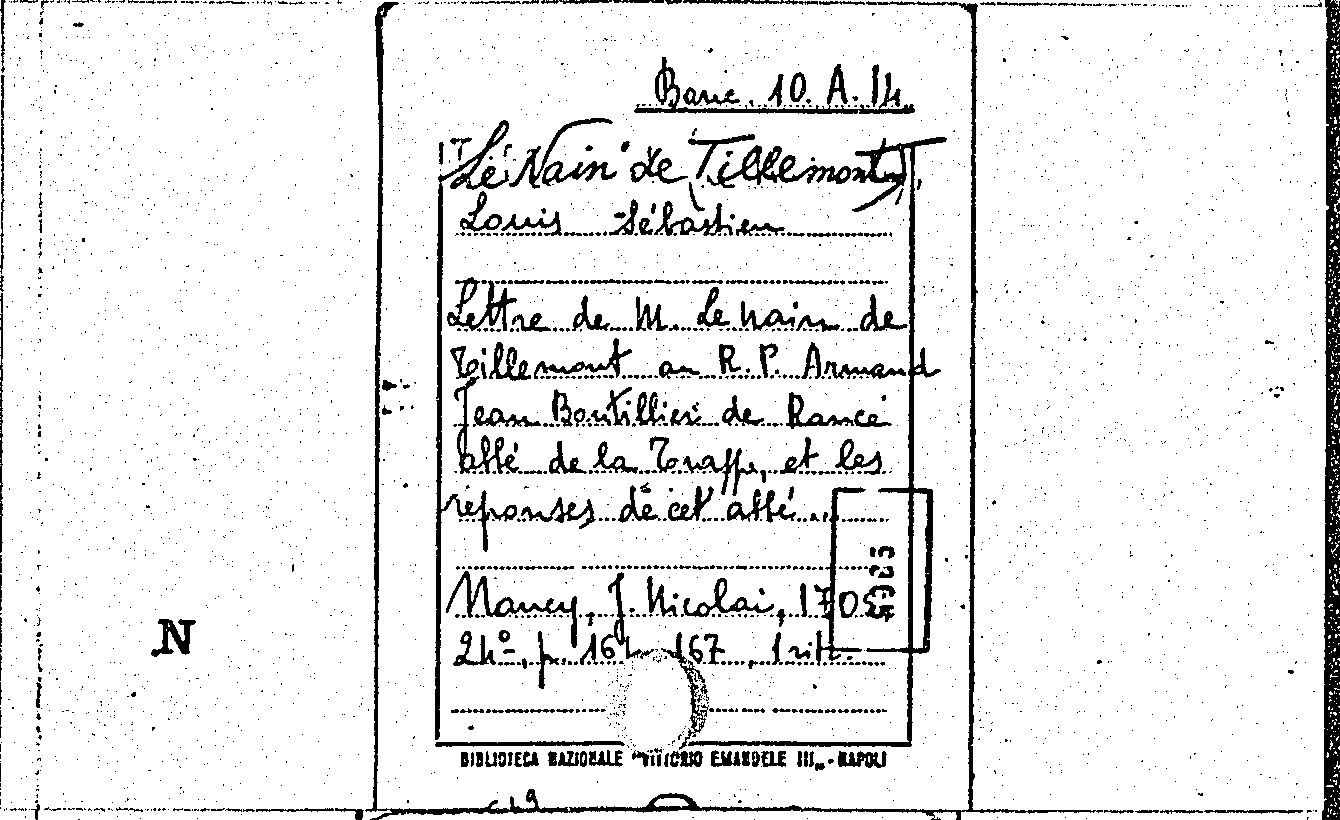 Banc. 10. A. 14.
Le Nain de Tillemont,
Louis Sébastien
Lettre de M. Le Nain de
Tillemont au R. P. Armand
Jean Boutillier de Rancé
abbé de la Trappe, et les
réponses de cet abbé...
Nancy, J. Nicolai, 1705
24º, p. 167, 1 ritr.
N
BIBLIOTECA NAZIONALE "VITTORIO EMANUELE III" - NAPOLI